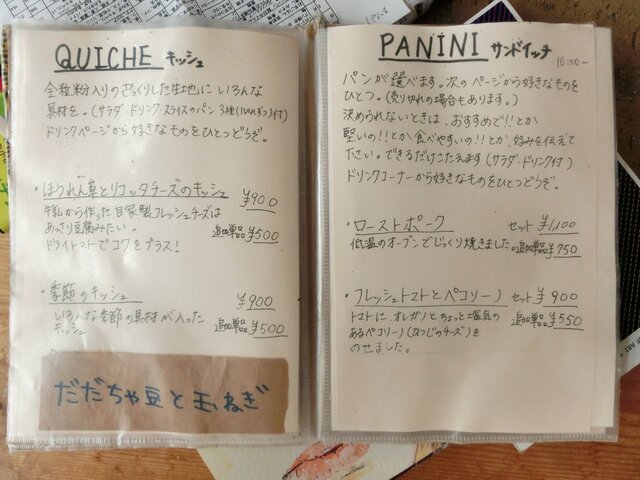 QUICHE キッシュ
全粒粉入りのざっくりした生地にいろんな
具材を。(サラダ・ドリンク・スライスのパン3種(1枚ずつ)付)
ドリンクページから好きなものをひとつどうぞ。
・ほうれん草とリコッタチーズのキッシュ ¥900
牛乳から作った自家製フレッシュチーズは
あっさり豆腐みたい。 追加単品¥500
ドライトマトでコクをプラス!
・季節のキッシュ ¥900
いろんな季節の具材が入った
キッシュ 追加単品¥500
だだちゃ豆と玉ねぎ
PANINI サンドイッチ 10:00~
パンが選べます。次のページから好きなものを
ひとつ。(売り切れの場合もあります。)
決められないときは、おすすめで!!とか
堅いの!!とか食べやすいの!!とか、好みを伝えて
下さい。できるだけこたえます(サラダ・ドリンク付)
ドリンクコーナーから好きなものをひとつどうぞ。
・ローストポーク セット ¥1,100
低温のオーブンでじっくり焼きました。追加単品¥750
・フレッシュトマトとペコリーノ セット ¥900
トマトに、オレガノとちょっと塩気の 追加単品¥550
あるペコリーノ(ひつじのチーズ)を
のせました。